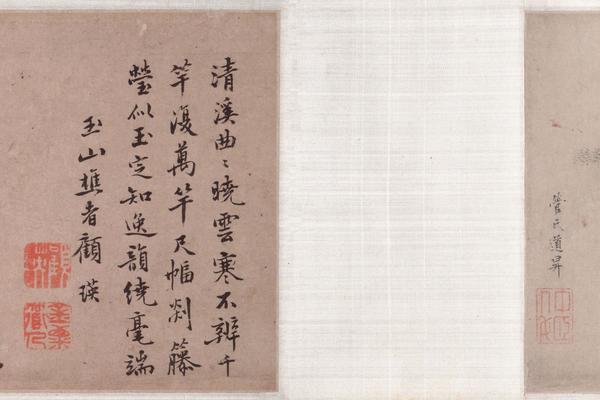 管氏道昇
清溪曲〻曉雲寒不辨千
竿復萬竿尺幅剡籐
瑩似玉定知逸韻繞毫端
玉山樵者顧瑛